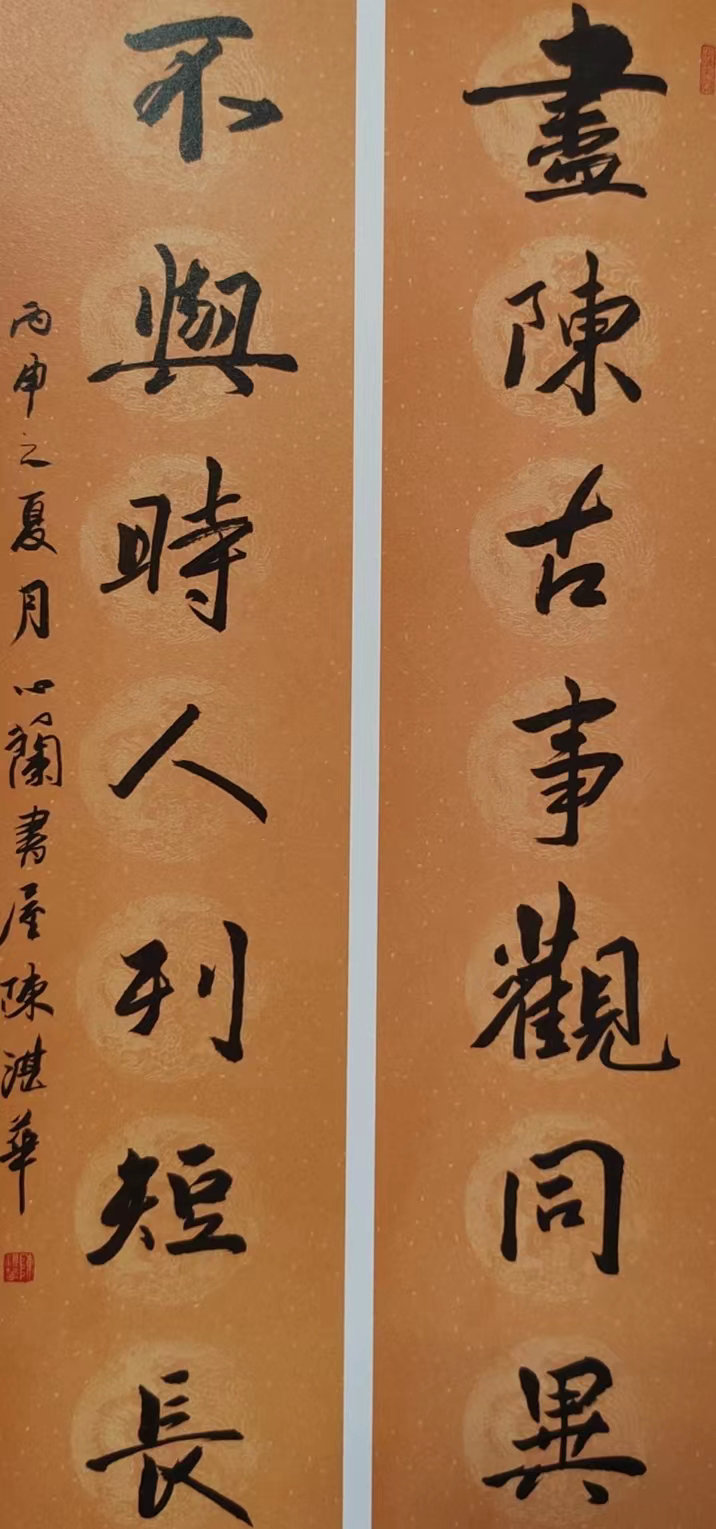 盡陳古事觀同異
不與時人刊短長
丙申之夏月心蘭書屋陳湛華